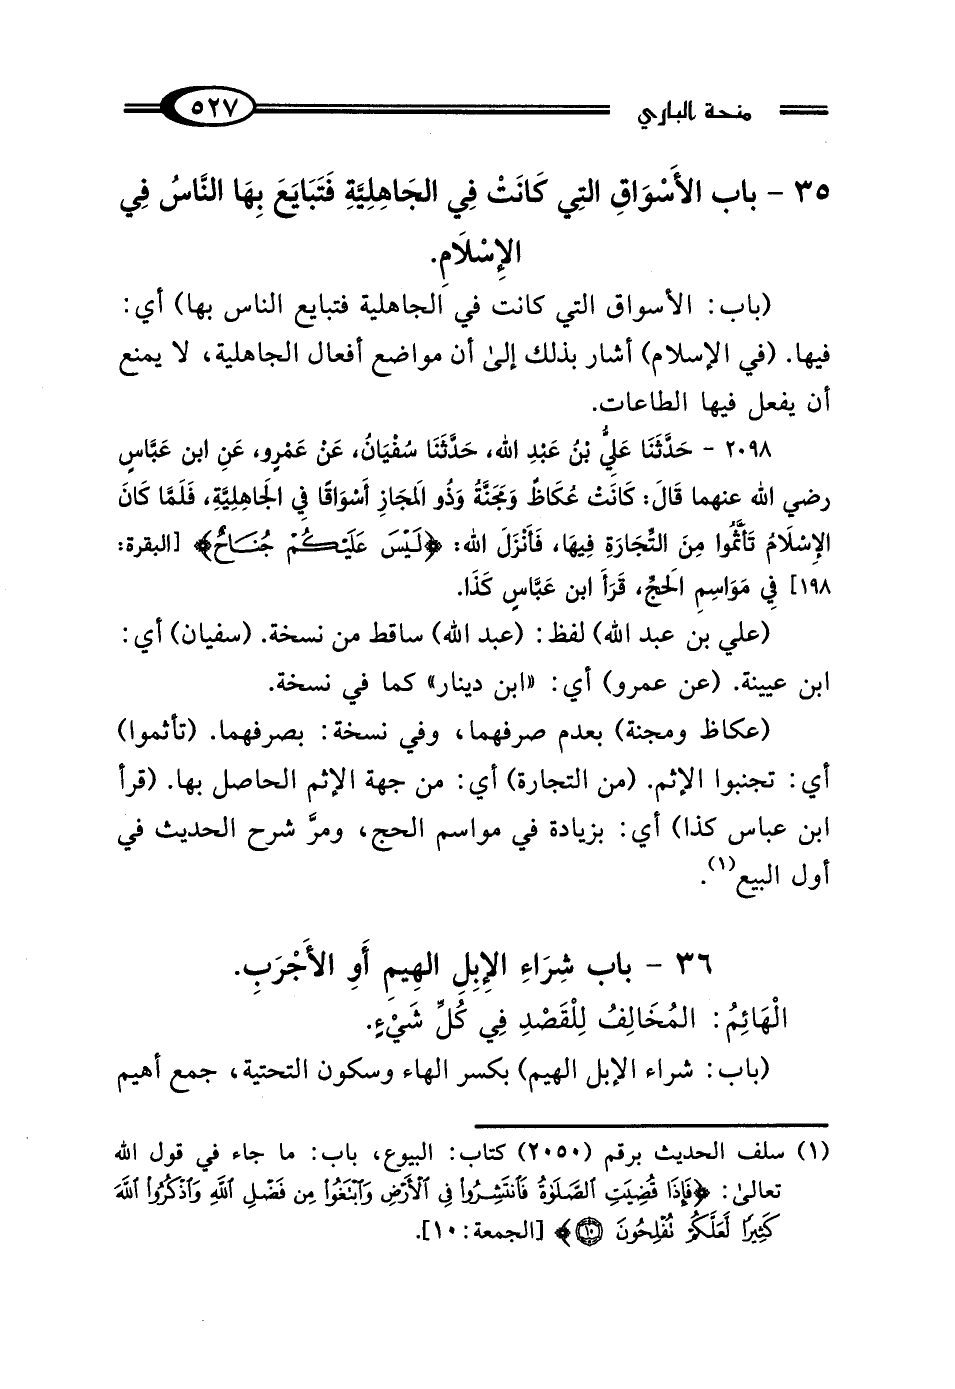 منحة الباري ٥٢٧
٣٥ - باب الأَسْوَاقِ التِي كَانَتْ فِي الجَاهِلِيَّةِ فَتَبَايَعَ بِهَا النَّاسُ فِي
الإِسْلَامِ.
(باب: الأسواق التي كانت في الجاهلية فتبايع الناس بها) أي:
فيها. (في الإسلام) أشار بذلك إلىٰ أن مواضع أفعال الجاهلية، لا يمنع
أن يفعل فيها الطاعات.
٢٠٩٨ - حَدَّثَنَا عَلِيُّ بْنُ عَبْدِ الله، حَدَّثَنَا سُفْيَانُ، عَنْ عَمْرٍو، عَنِ ابن عَبَّاسٍ
رضي الله عنهما قَالَ: كَانَتْ عُكَاظُ وَمَجَنَّةُ وَذُو المَجَازِ أَسْوَاقًا فِي الجَاهِلِيَّةِ، فَلَمَّا كَانَ
الإِسْلَامُ تَأَثَّمُوا مِنَ التِّجَارَةِ فِيهَا، فَأَنْزَلَ الله: ﴿لَيْسَ عَلَيْكُمْ جُنَاحٌ﴾ [البقرة:
١٩٨] فِي مَوَاسِمِ الَحجِّ، قَرَأَ ابن عَبَّاسٍ كَذَا.
(علي بن عبد الله) لفظ: (عبد الله) ساقط من نسخة. (سفيان) أي:
ابن عيينة. (عن عمرو) أي: «ابن دينار» كما في نسخة.
(عكاظ ومجنة) بعدم صرفهما، وفي نسخة: بصرفهما. (تأثموا)
أي: تجنبوا الإثم. (من التجارة) أي: من جهة الإثم الحاصل بها. (قرأ
ابن عباس كذا) أي: بزيادة في مواسم الحج، ومرَّ شرح الحديث في
أول البيع(١).
٣٦ - باب شِرَاءِ الإِبِلِ الهِيمِ أَوِ الأَجْرَبِ.
الْهَائِمُ: المُخَالِفُ لِلْقَصْدِ فِي كُلِّ شَيْءٍ.
(باب: شراء الإبل الهيم) بكسر الهاء وسكون التحتية، جمع أهيم
(١) سلف الحديث برقم (٢٠٥٠) كتاب: البيوع، باب: ما جاء في قول الله
تعالىٰ: ﴿فَإِذَا قُضِيَتِ ٱلصَّلَوٰةُ فَٱنتَشِرُوا۟ فِى ٱلْأَرْضِ وَٱبْتَغُوا۟ مِن فَضْلِ ٱللَّهِ وَٱذْكُرُوا۟ ٱللَّهَ
كَثِيرًا لَّعَلَّكُمْ تُفْلِحُونَ ١٠﴾ [الجمعة: ١٠].